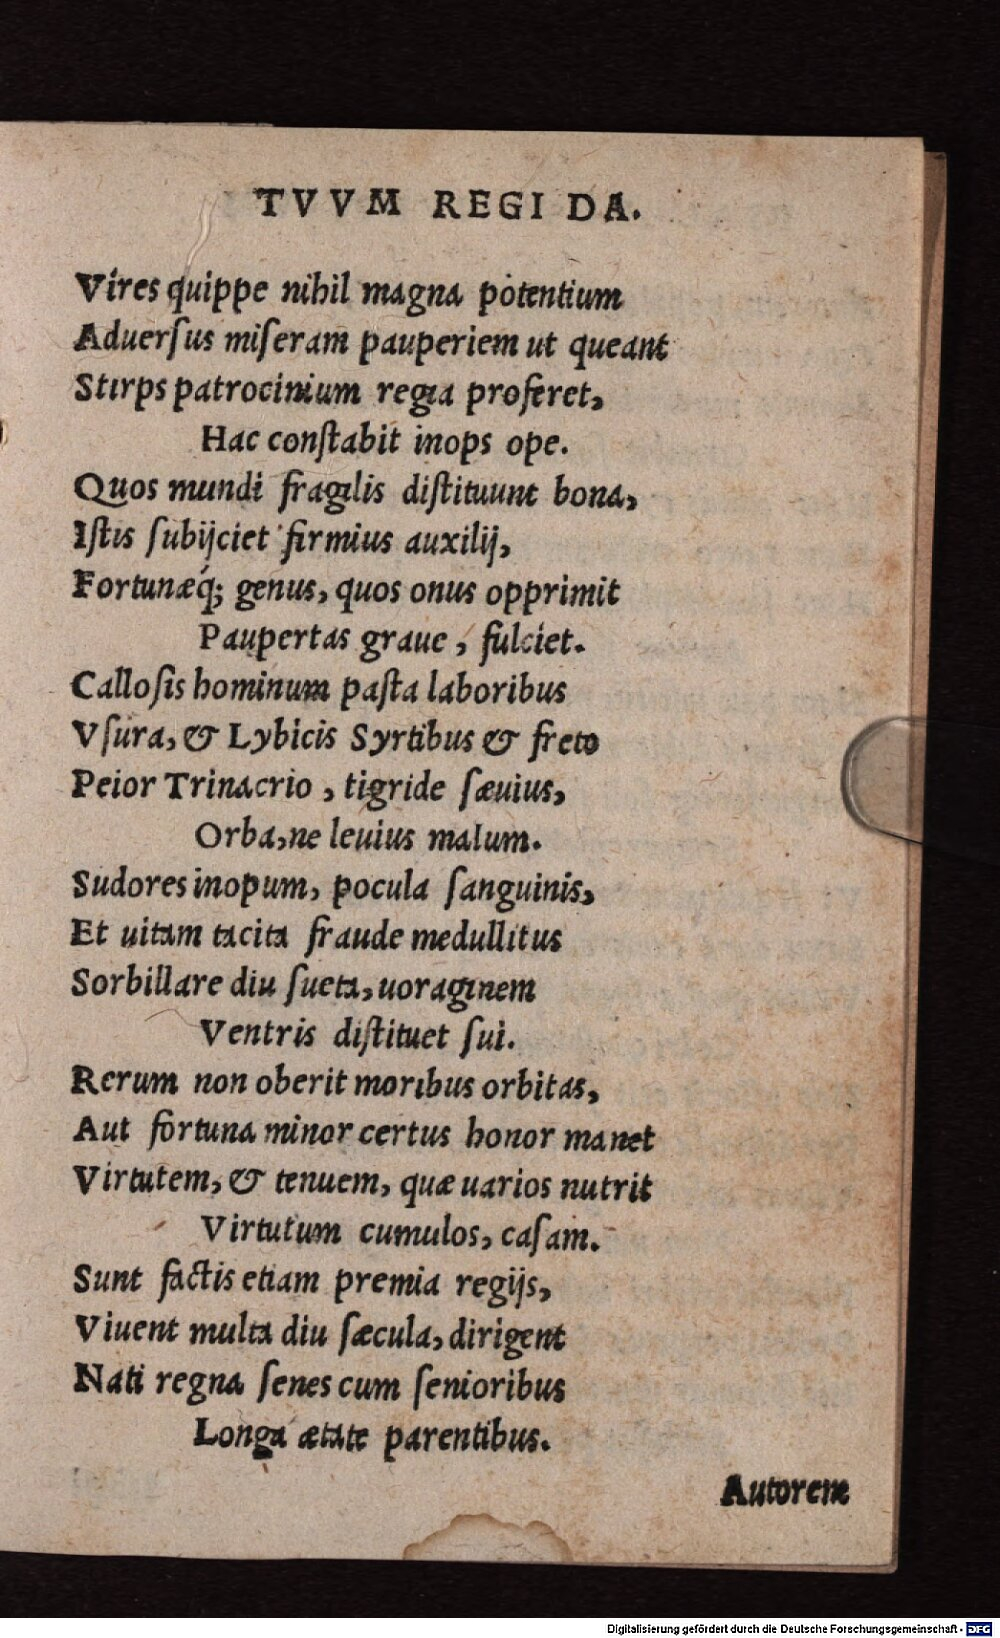 TVVM REGI DA.
Vires quippe nihil magna potentium
Aduerſus miſeram pauperiem ut queant
Stirps patrocinium regia proferet,
Hac conſtabit inops ope.
Quos mundi fragilis diſtituunt bona,
Iſtis ſubijciet firmius auxilij,
Fortunæq́; genus, quos onus opprimit
Paupertas graue, fulciet.
Calloſis hominum paſta laboribus
Vſura, & Lybicis Syrtibus & freto
Peior Trinacrio, tigride ſæuius,
Orba, ne leuius malum.
Sudores inopum, pocula ſanguinis,
Et uitam tacita fraude medullitus
Sorbillare diu ſueta, uoraginem
Ventris diſtituet ſui.
Rerum non oberit moribus orbitas,
Aut fortuna minor certus honor manet
Virtutem, & tenuem, quæ uarios nutrit
Virtutum cumulos, caſam.
Sunt factis etiam premia regijs,
Viuent multa diu ſæcula, dirigent
Nati regna ſenes cum ſenioribus
Longa ætate parentibus.
Autorem
Digitalisierung gefördert durch die Deutsche Forschungsgemeinschaft - DFG